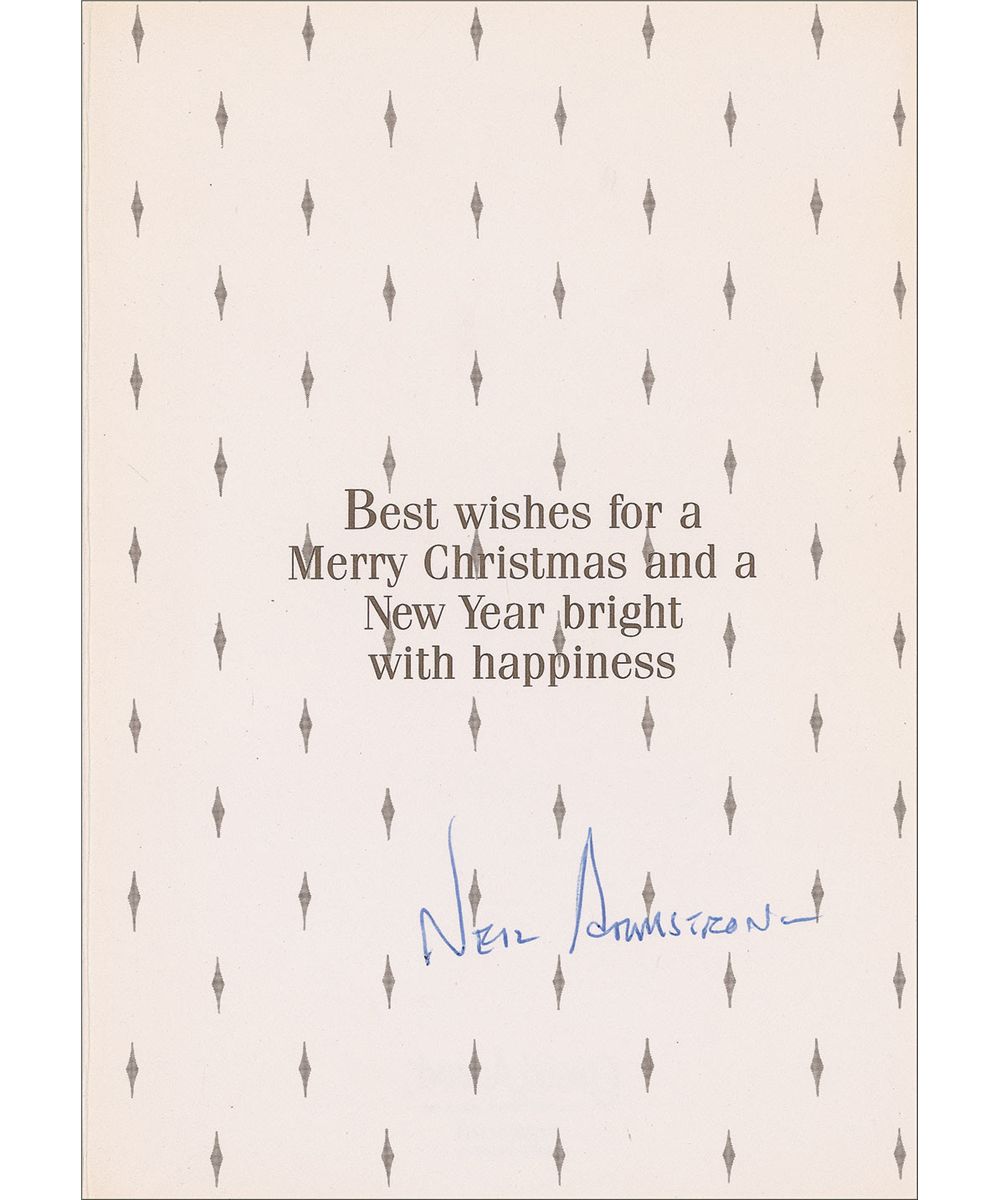 Best wishes for a
Merry Christmas and a
New Year bright
with happiness
Neil Armstrong